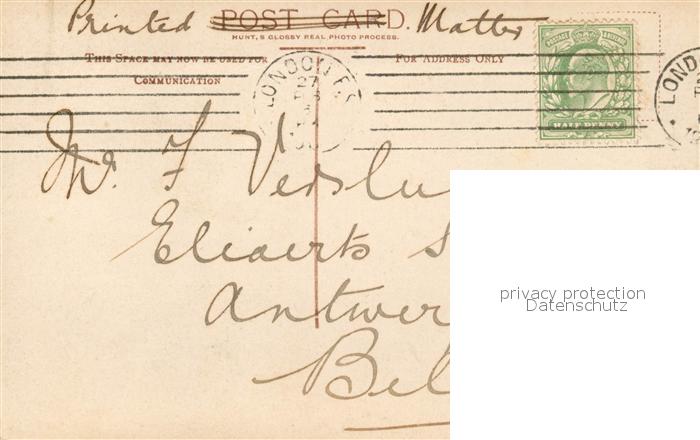 Printed POST CARD. Matter
HUNT, S GLOSSY REAL PHOTO PROCESS.
THIS SPACE MAY NOW BE USED FOR
COMMUNICATION
FOR ADDRESS ONLY
LONDON
LOND
HALF PENNY
Mr. F Verslu
Eliaerts S
Antwer
Bel
privacy protection
Datenschutz